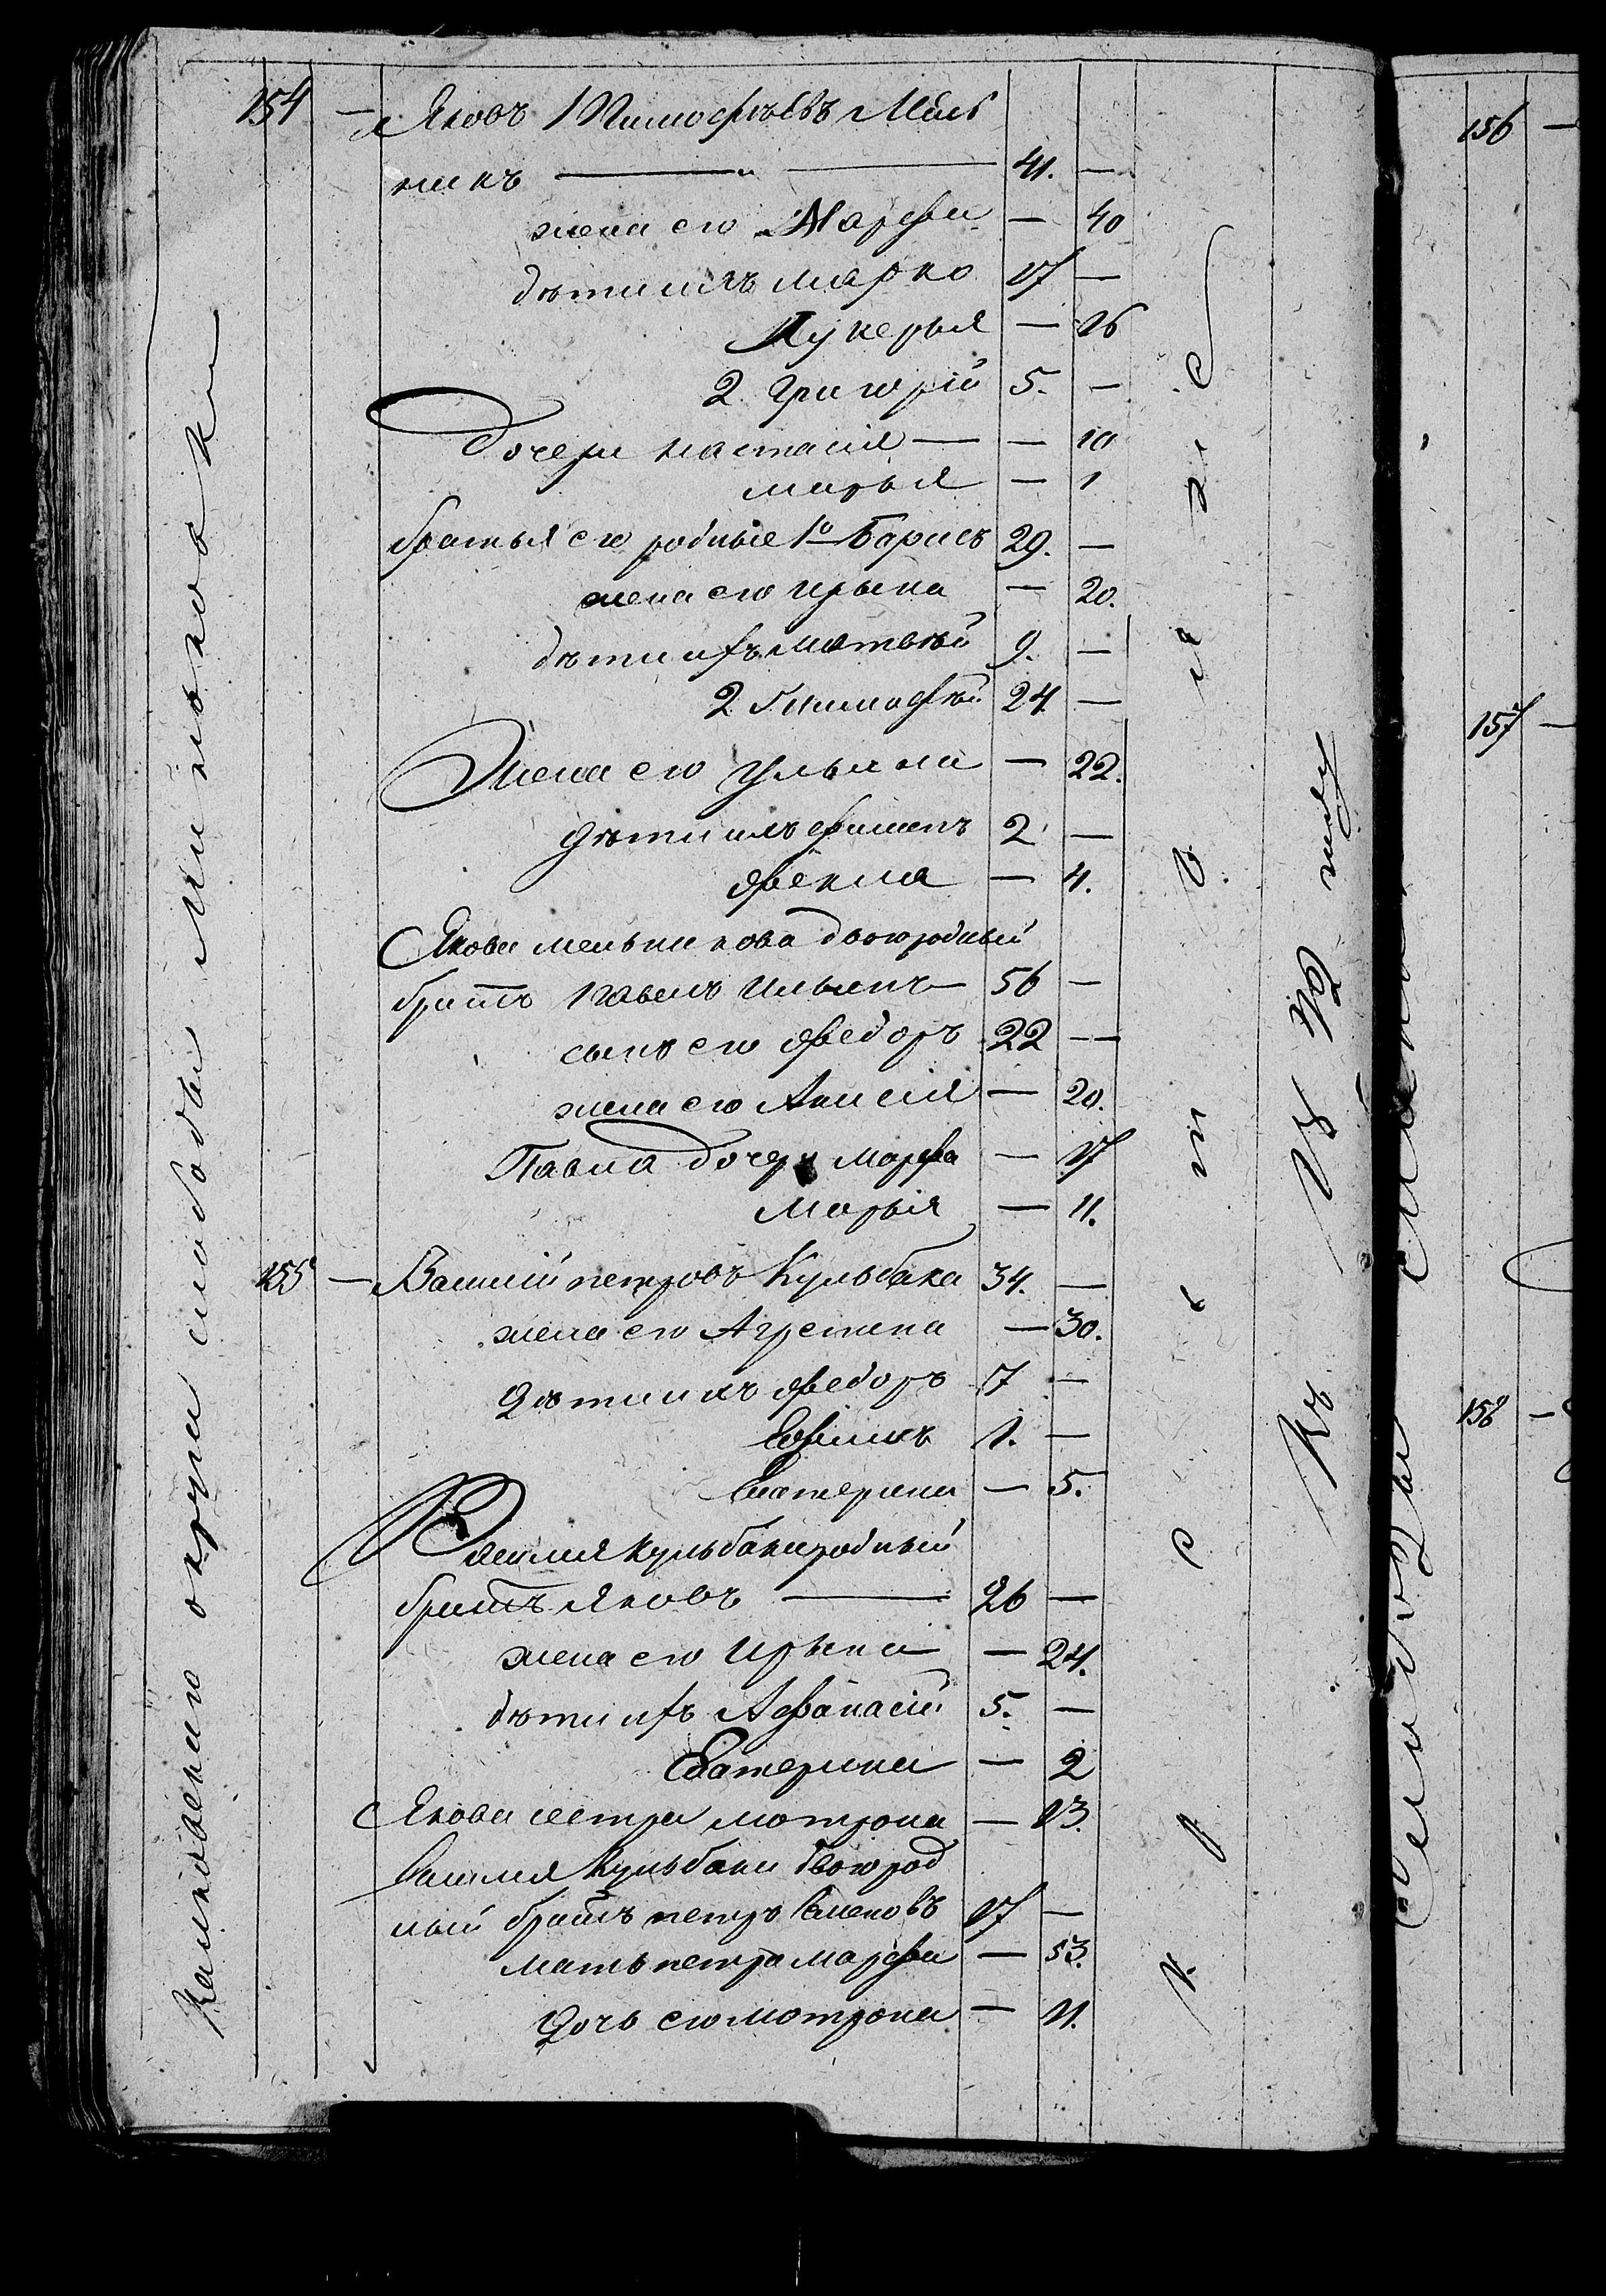 154 — Яковъ Тимофѣевъ Мель
никъ — 41. —
жена его Марфа — 40
дѣти ихъ Марко 17 —
Лукерья — 16
2. Григорій 5. —
Дочери Настасія — — 10
Марья — 1
братья его родные 1й Борисъ 29. —
жена его Ирына — 20.
дѣти ихъ Матвѣй 9. —
2 Тимофѣй 24 —
Жена его Ульяна — 22.
Дѣти ихъ Филипъ 2 —
Фекла — 4.
Якова Мельникова двоюродный
братъ Павелъ Ильинъ — 56 —
сынъ его Федоръ 22 —
жена его Анисія — 20.
Павла дочери Марфа — 17
Марья — 11.
155 — Василій Петровъ Кульбака 34. —
жена его Агрепина — 30.
Дѣти ихъ Федоръ 7 —
Ефимъ 1. —
Екатерина — 5.
Василія Кульбаки родный
братъ Яковъ — 26 —
жена его Ирына — 24.
дѣти ихъ Афанасій 5. —
Екатерина — 2
Якова сестра Мотрона — 13.
Василія Кульбаки двоюрод
ный братъ Петръ Семеновъ 17 —
Мать Петра Марфа — 53.
Дочь его Мотрона — 11.
слободы
156 —
157 —
158 —